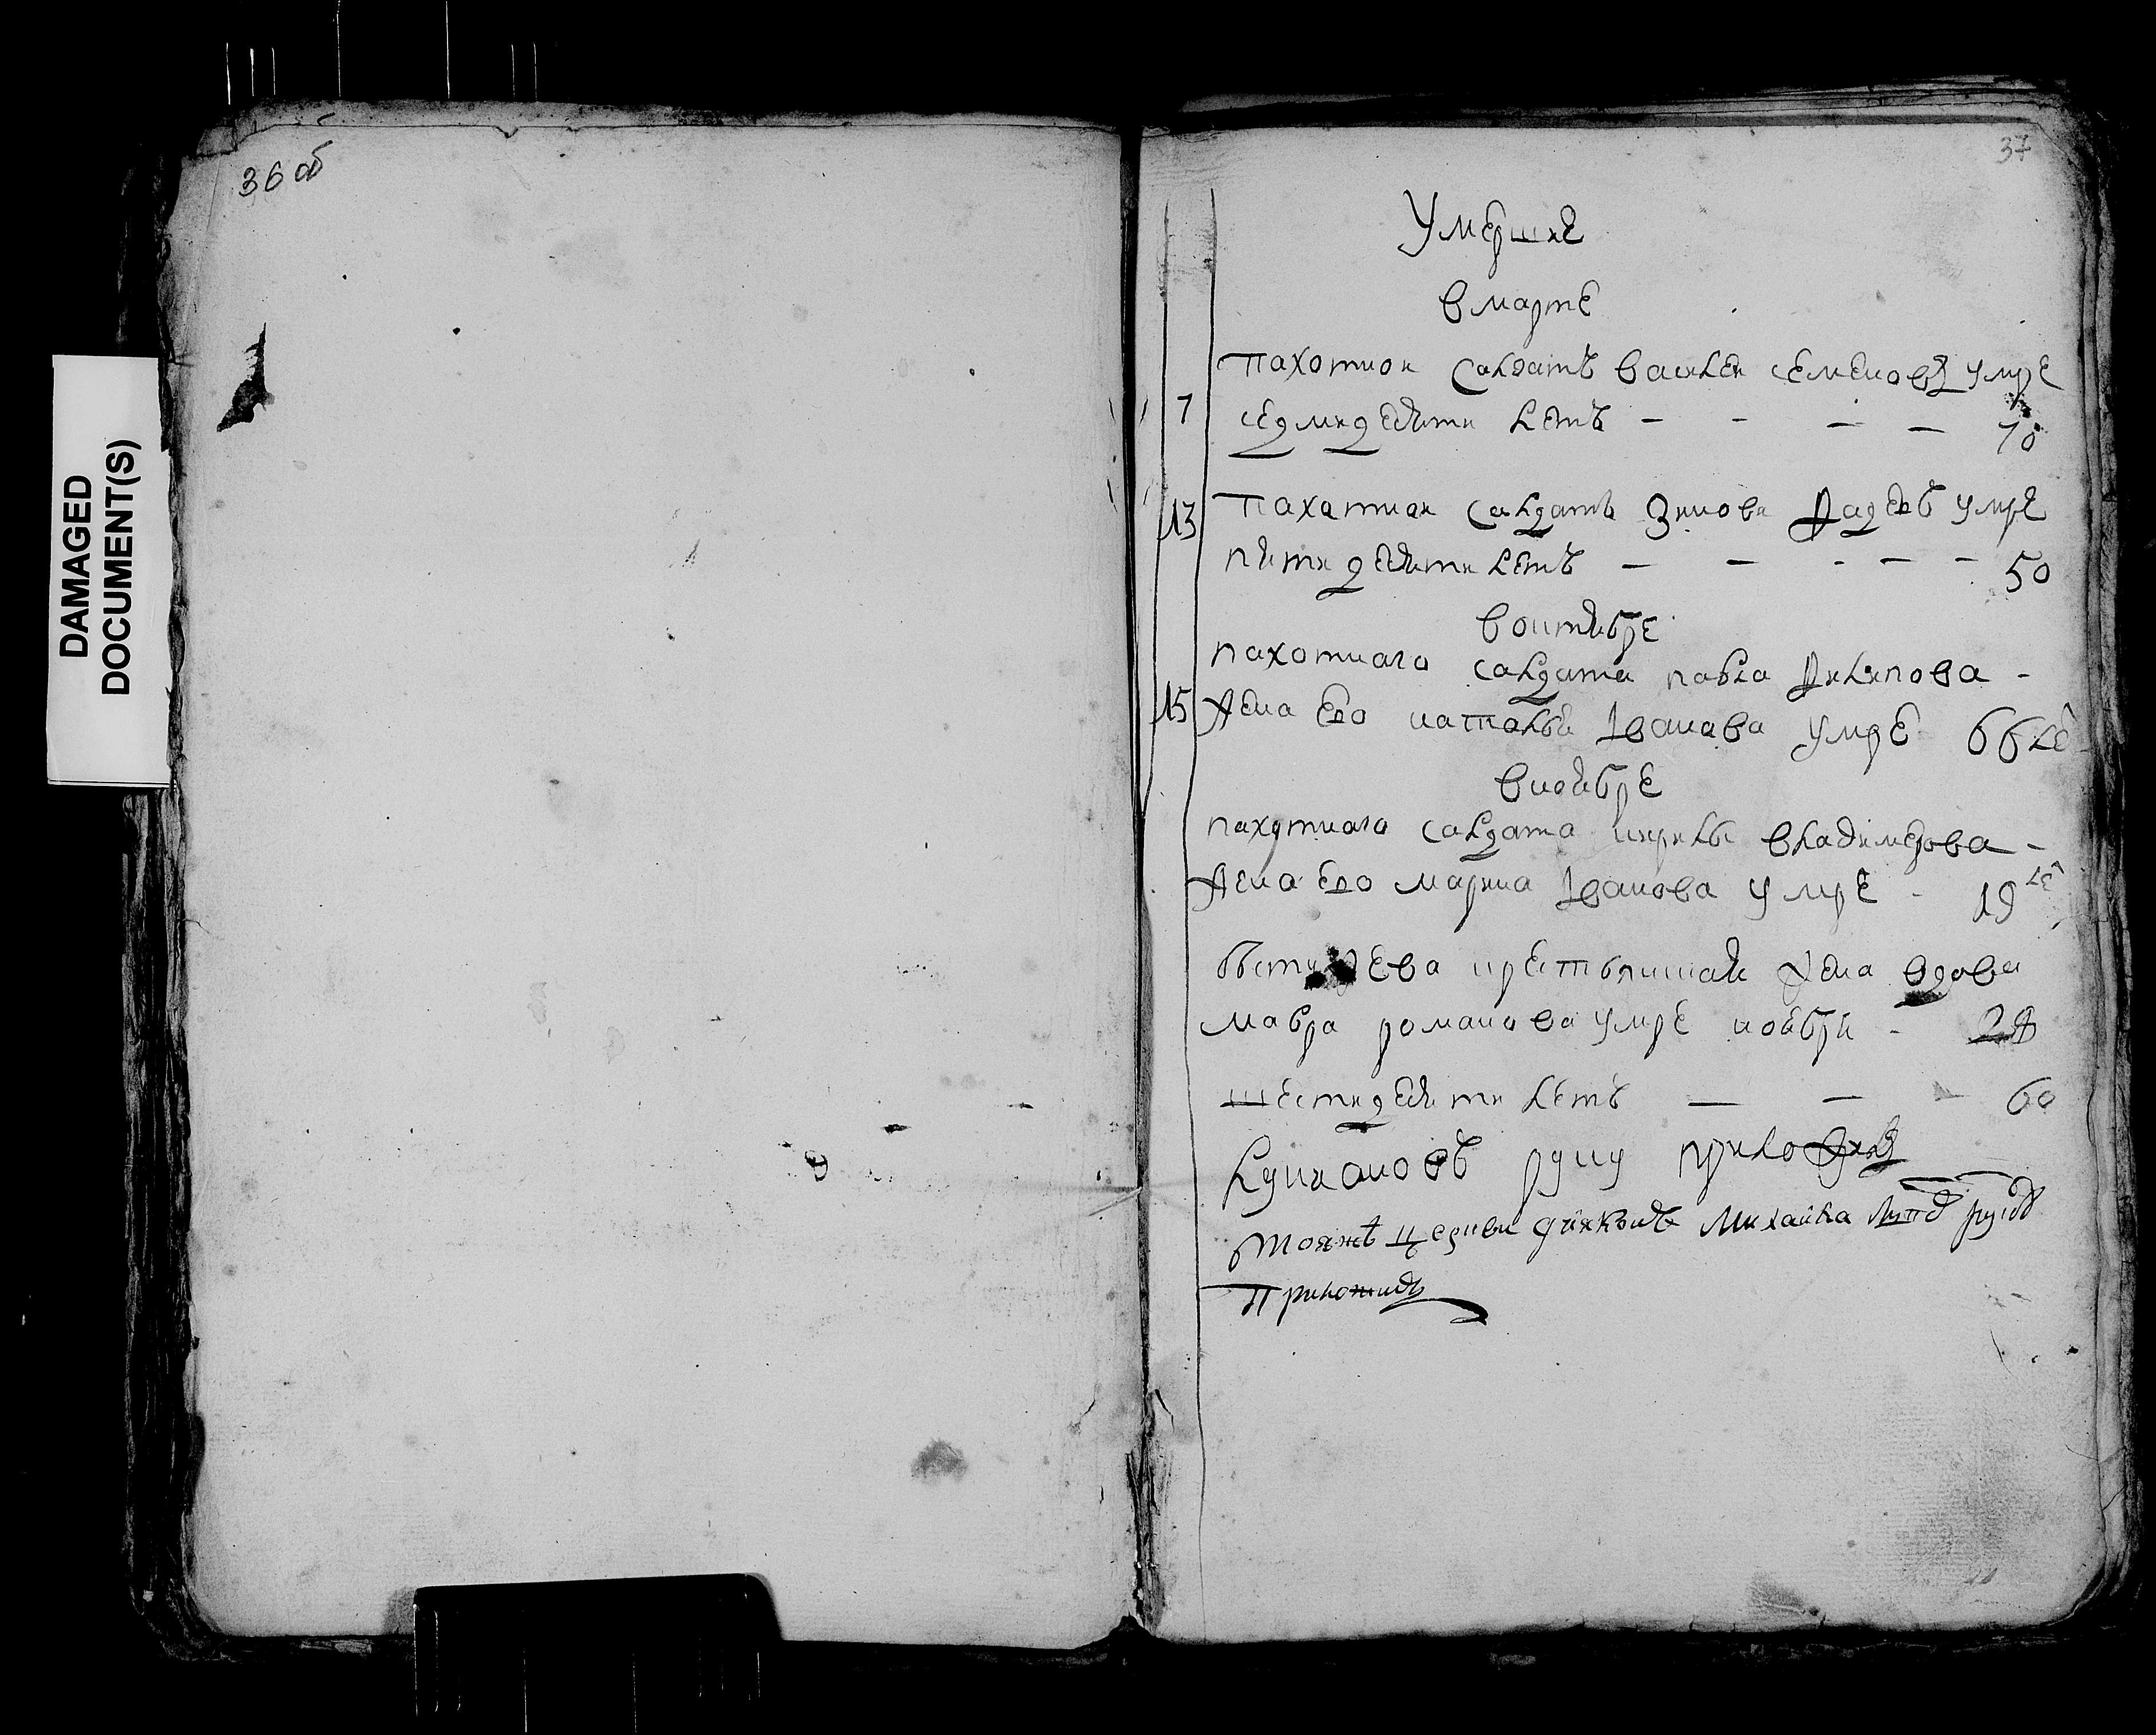 36 об
DAMAGED
DOCUMENT(S)
37
Умершие
в марте
пахотнои салдатъ василеи семеновъ умре
7 седмидесяти летъ — - — — 70
13 пахатнои салдатъ Зиновеи Фадеевъ умре
пятидесяти летъ — — - — - 50
в октябре
пахотнаго салдата павла Филипова -
15 жена ево наталья Iванава умре 66 ле
в ноябре
пахотнаго салдата кирилы владимерова -
жена ево марина Iванова умре - 19 ле
крестьянина жена вдова
мавра романова умре ноября - 28
шестидесяти летъ — — - 60
руку приложилъ
тояжъ церкви дьячокъ Михаила руку
приложилъ